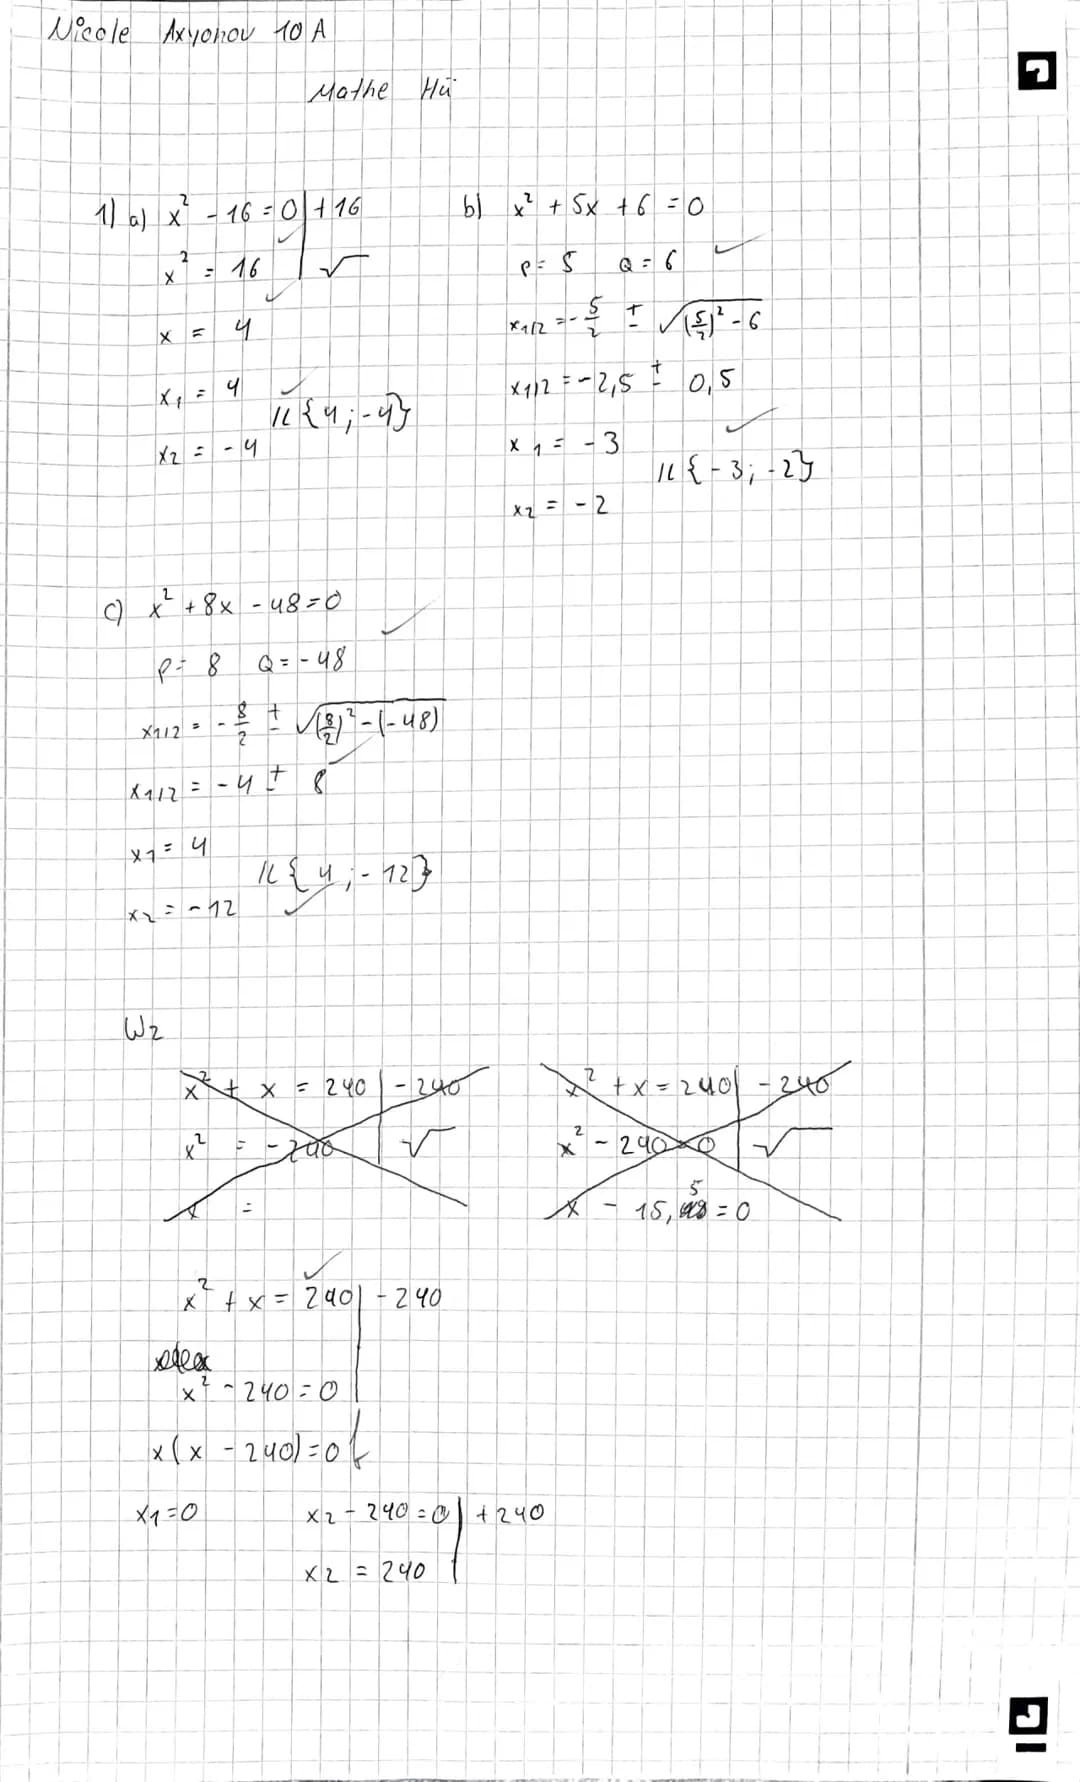 Nicole Axyonov 10 A
Mathe Hü
1) a) x² - 16 = 0 | + 16
x² = 16 | √
x = 4
x₁ = 4
x₂ = - 4
𝕃 {4; -4}
b) x² + 5x + 6 = 0
p = 5 Q = 6
x1/2 = - 5/2 ± √((5/2)² - 6)
x1/2 = - 2,5 ± 0,5
x1 = - 3
x2 = - 2
𝕃 {- 3; - 2}
c) x² + 8x - 48 = 0
p = 8 Q = - 48
x1/2 = - 8/2 ± √((8/2)² - (- 48))
x1/2 = - 4 ± 8
x1 = 4
x2 = - 12
𝕃 {4; - 12}
W2
x² + x = 240 | - 240
x² = - 240 | √
x =
x² + x = 240 | - 240
x² - 240 = 0 | √
x - 15,5 = 0
x² + x = 240 | - 240
x² - 240 = 0
x(x - 240) = 0
x1 = 0 x2 - 240 = 0 | + 240
x2 = 240